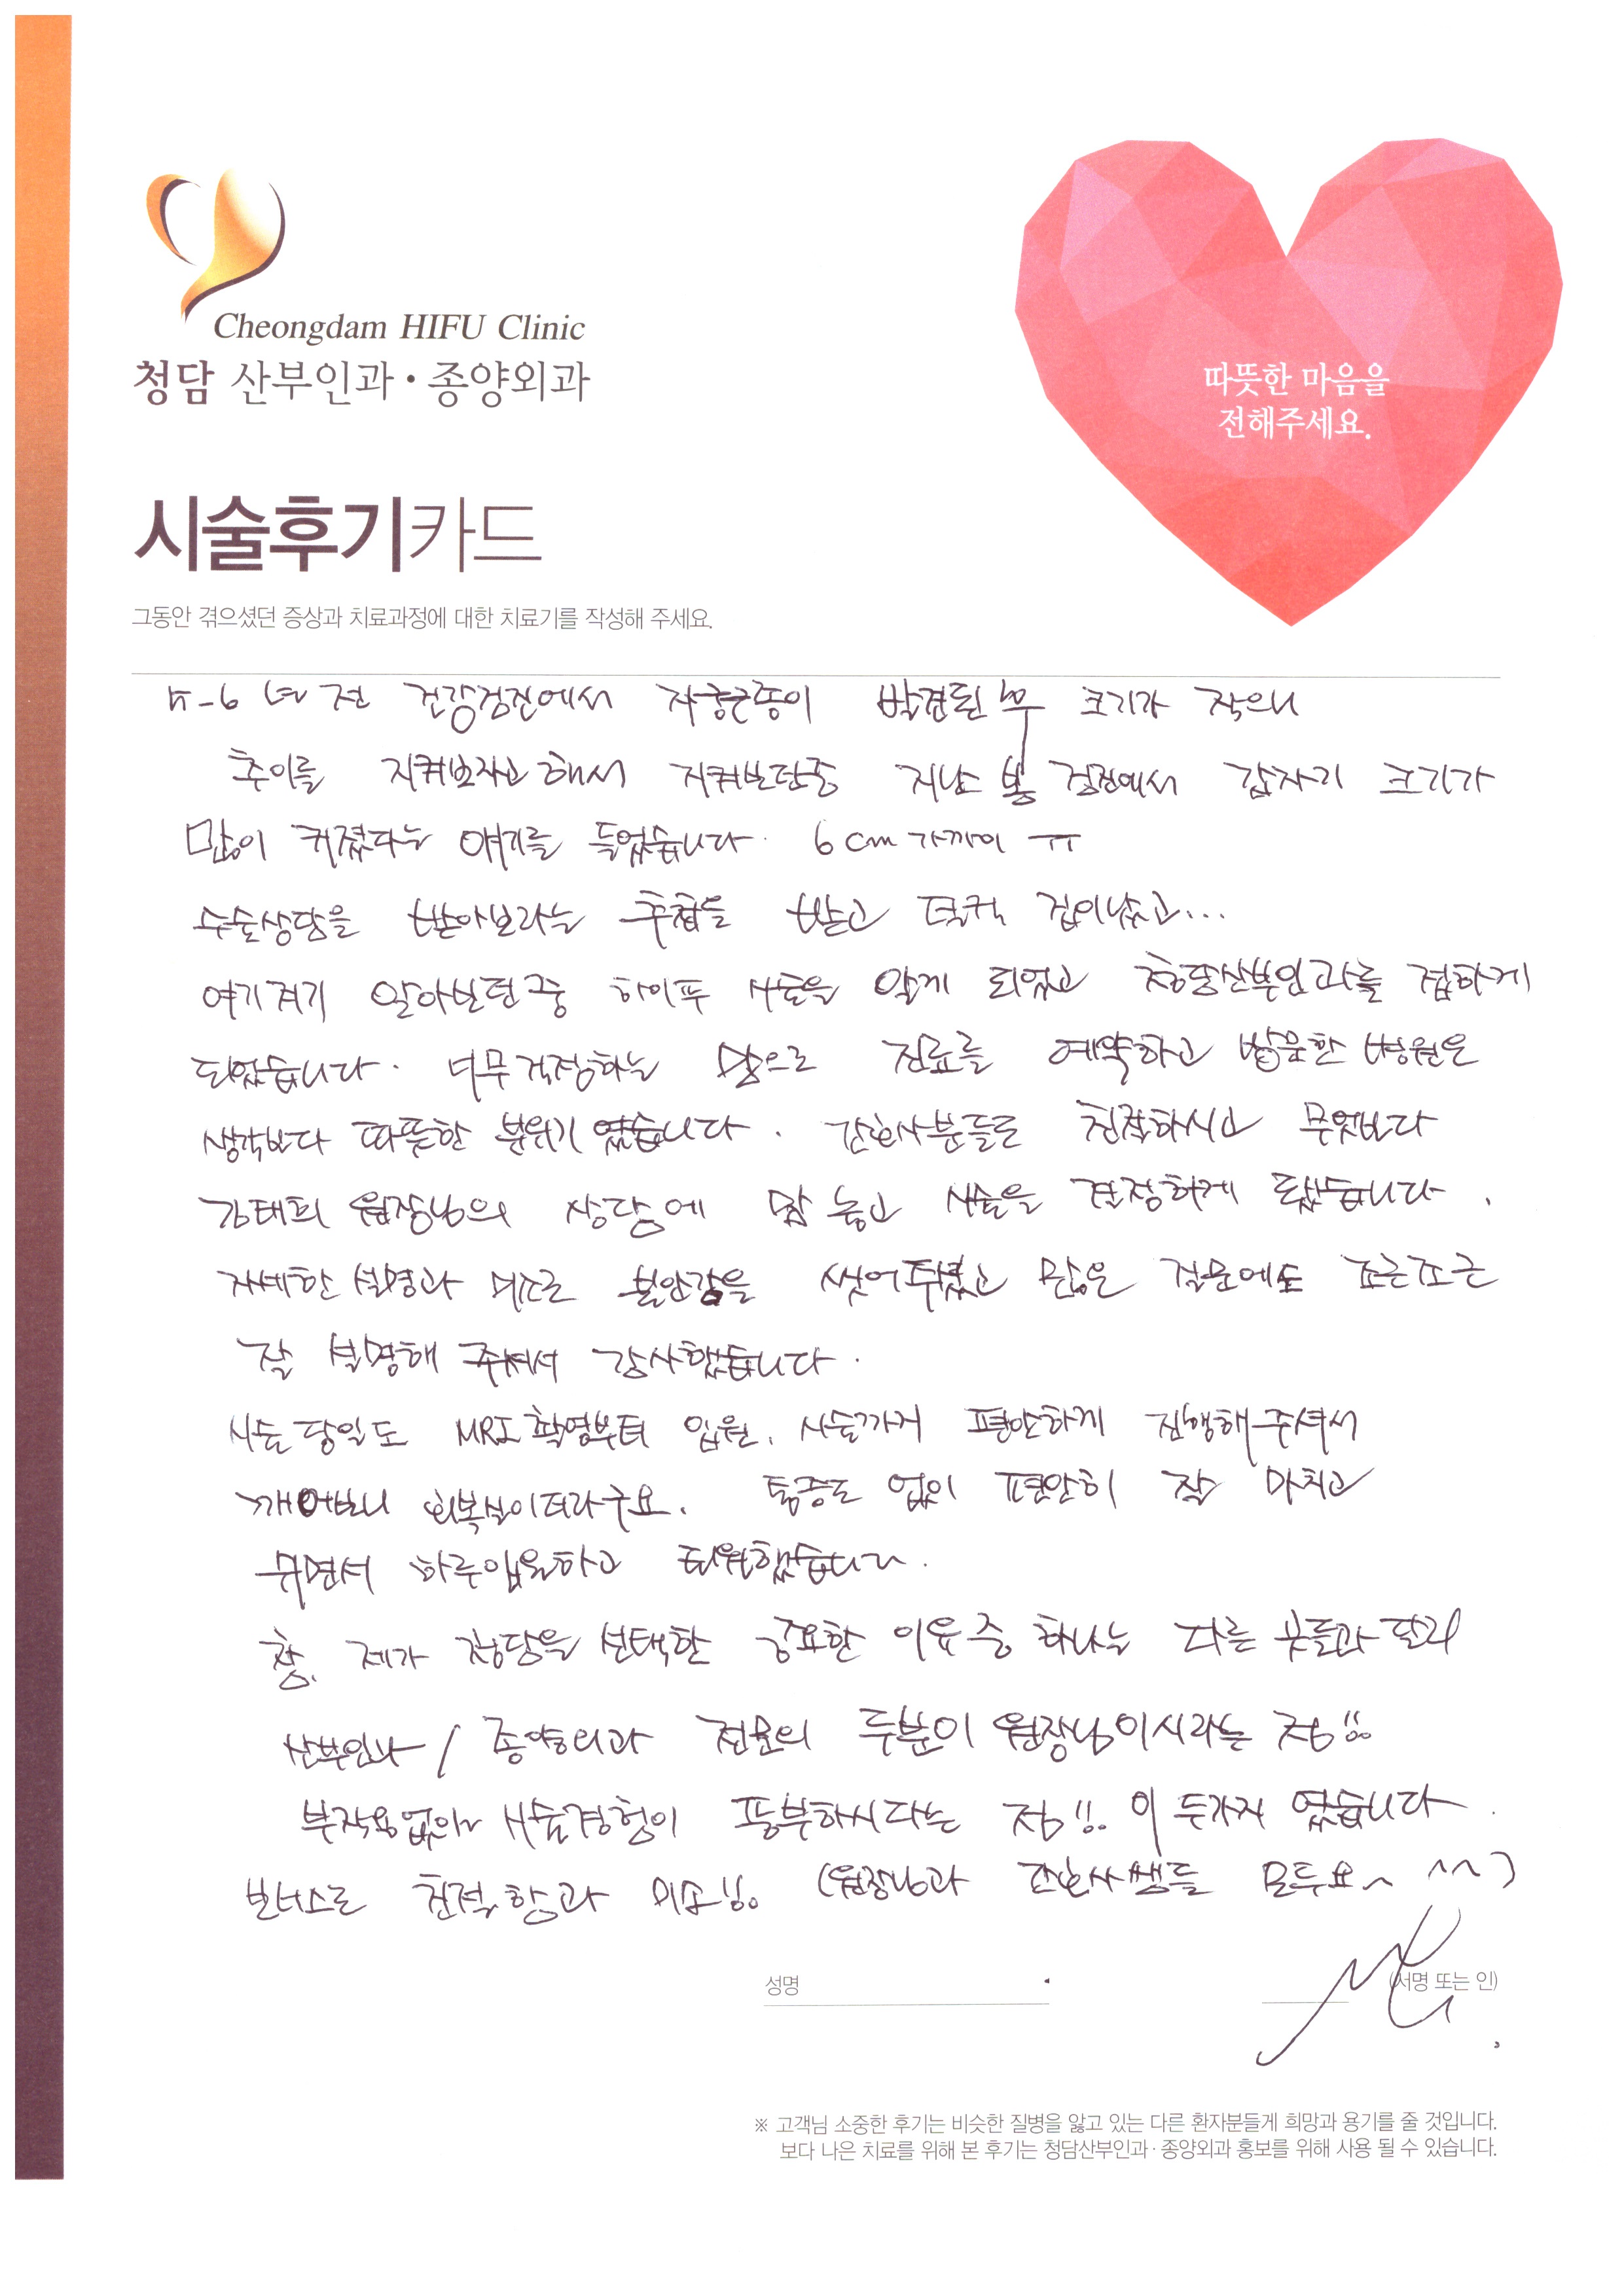 Cheongdam HIFU Clinic
청담 산부인과·종양외과
따뜻한 마음을
전해주세요.
시술후기카드
그동안 겪으셨던 증상과 치료과정에 대한 치료기를 작성해 주세요.
5-6년 전 건강검진에서 자궁근종이 발견된 후 크기가 작으니
추이를 지켜보자고 해서 지켜보던중 지난 봄 검진에서 갑자기 크기가
많이 커졌다는 얘기를 들었습니다. 6cm 가까이 ㅠ
수술상담을 받아보라는 추천을 받고 덜컥 겁이났고...
여기저기 알아보던중 하이푸 시술을 알게 되었고 청담산부인과를 접하게
되었습니다. 너무 걱정하는 맘으로 진료를 예약하고 방문한 병원은
생각보다 따뜻한 분위기 였습니다. 간호사분들도 친절하시고 무엇보다
김태희 원장님의 상담에 맘 놓고 시술을 결정하게 됐습니다.
자세한 설명과 미소로 불안감을 씻어주셨고 많은 질문에도 조근조근
잘 설명해 주셔서 감사했습니다.
시술 당일도 MRI 촬영부터 입원, 시술까지 편안하게 진행해주셔서
깨어보니 회복실이더라구요. 통증도 없이 편안히 잘 마치고
쉬면서 하루입원하고 퇴원했습니다.
참, 제가 청담을 선택한 중요한 이유 중 하나는 다른 곳들과 달리
산부인과 / 종양외과 전문의 두분이 원장님이시라는 점!!
부작용없이 시술경험이 풍부하시다는 점!!. 이 두가지 였습니다.
보너스로 친절함과 미소!! (원장님과 간호사쌤들 모두요~ ^^)
성명
(서명 또는 인)
※ 고객님 소중한 후기는 비슷한 질병을 앓고 있는 다른 환자분들게 희망과 용기를 줄 것입니다.
보다 나은 치료를 위해 본 후기는 청담산부인과·종양외과 홍보를 위해 사용 될 수 있습니다.